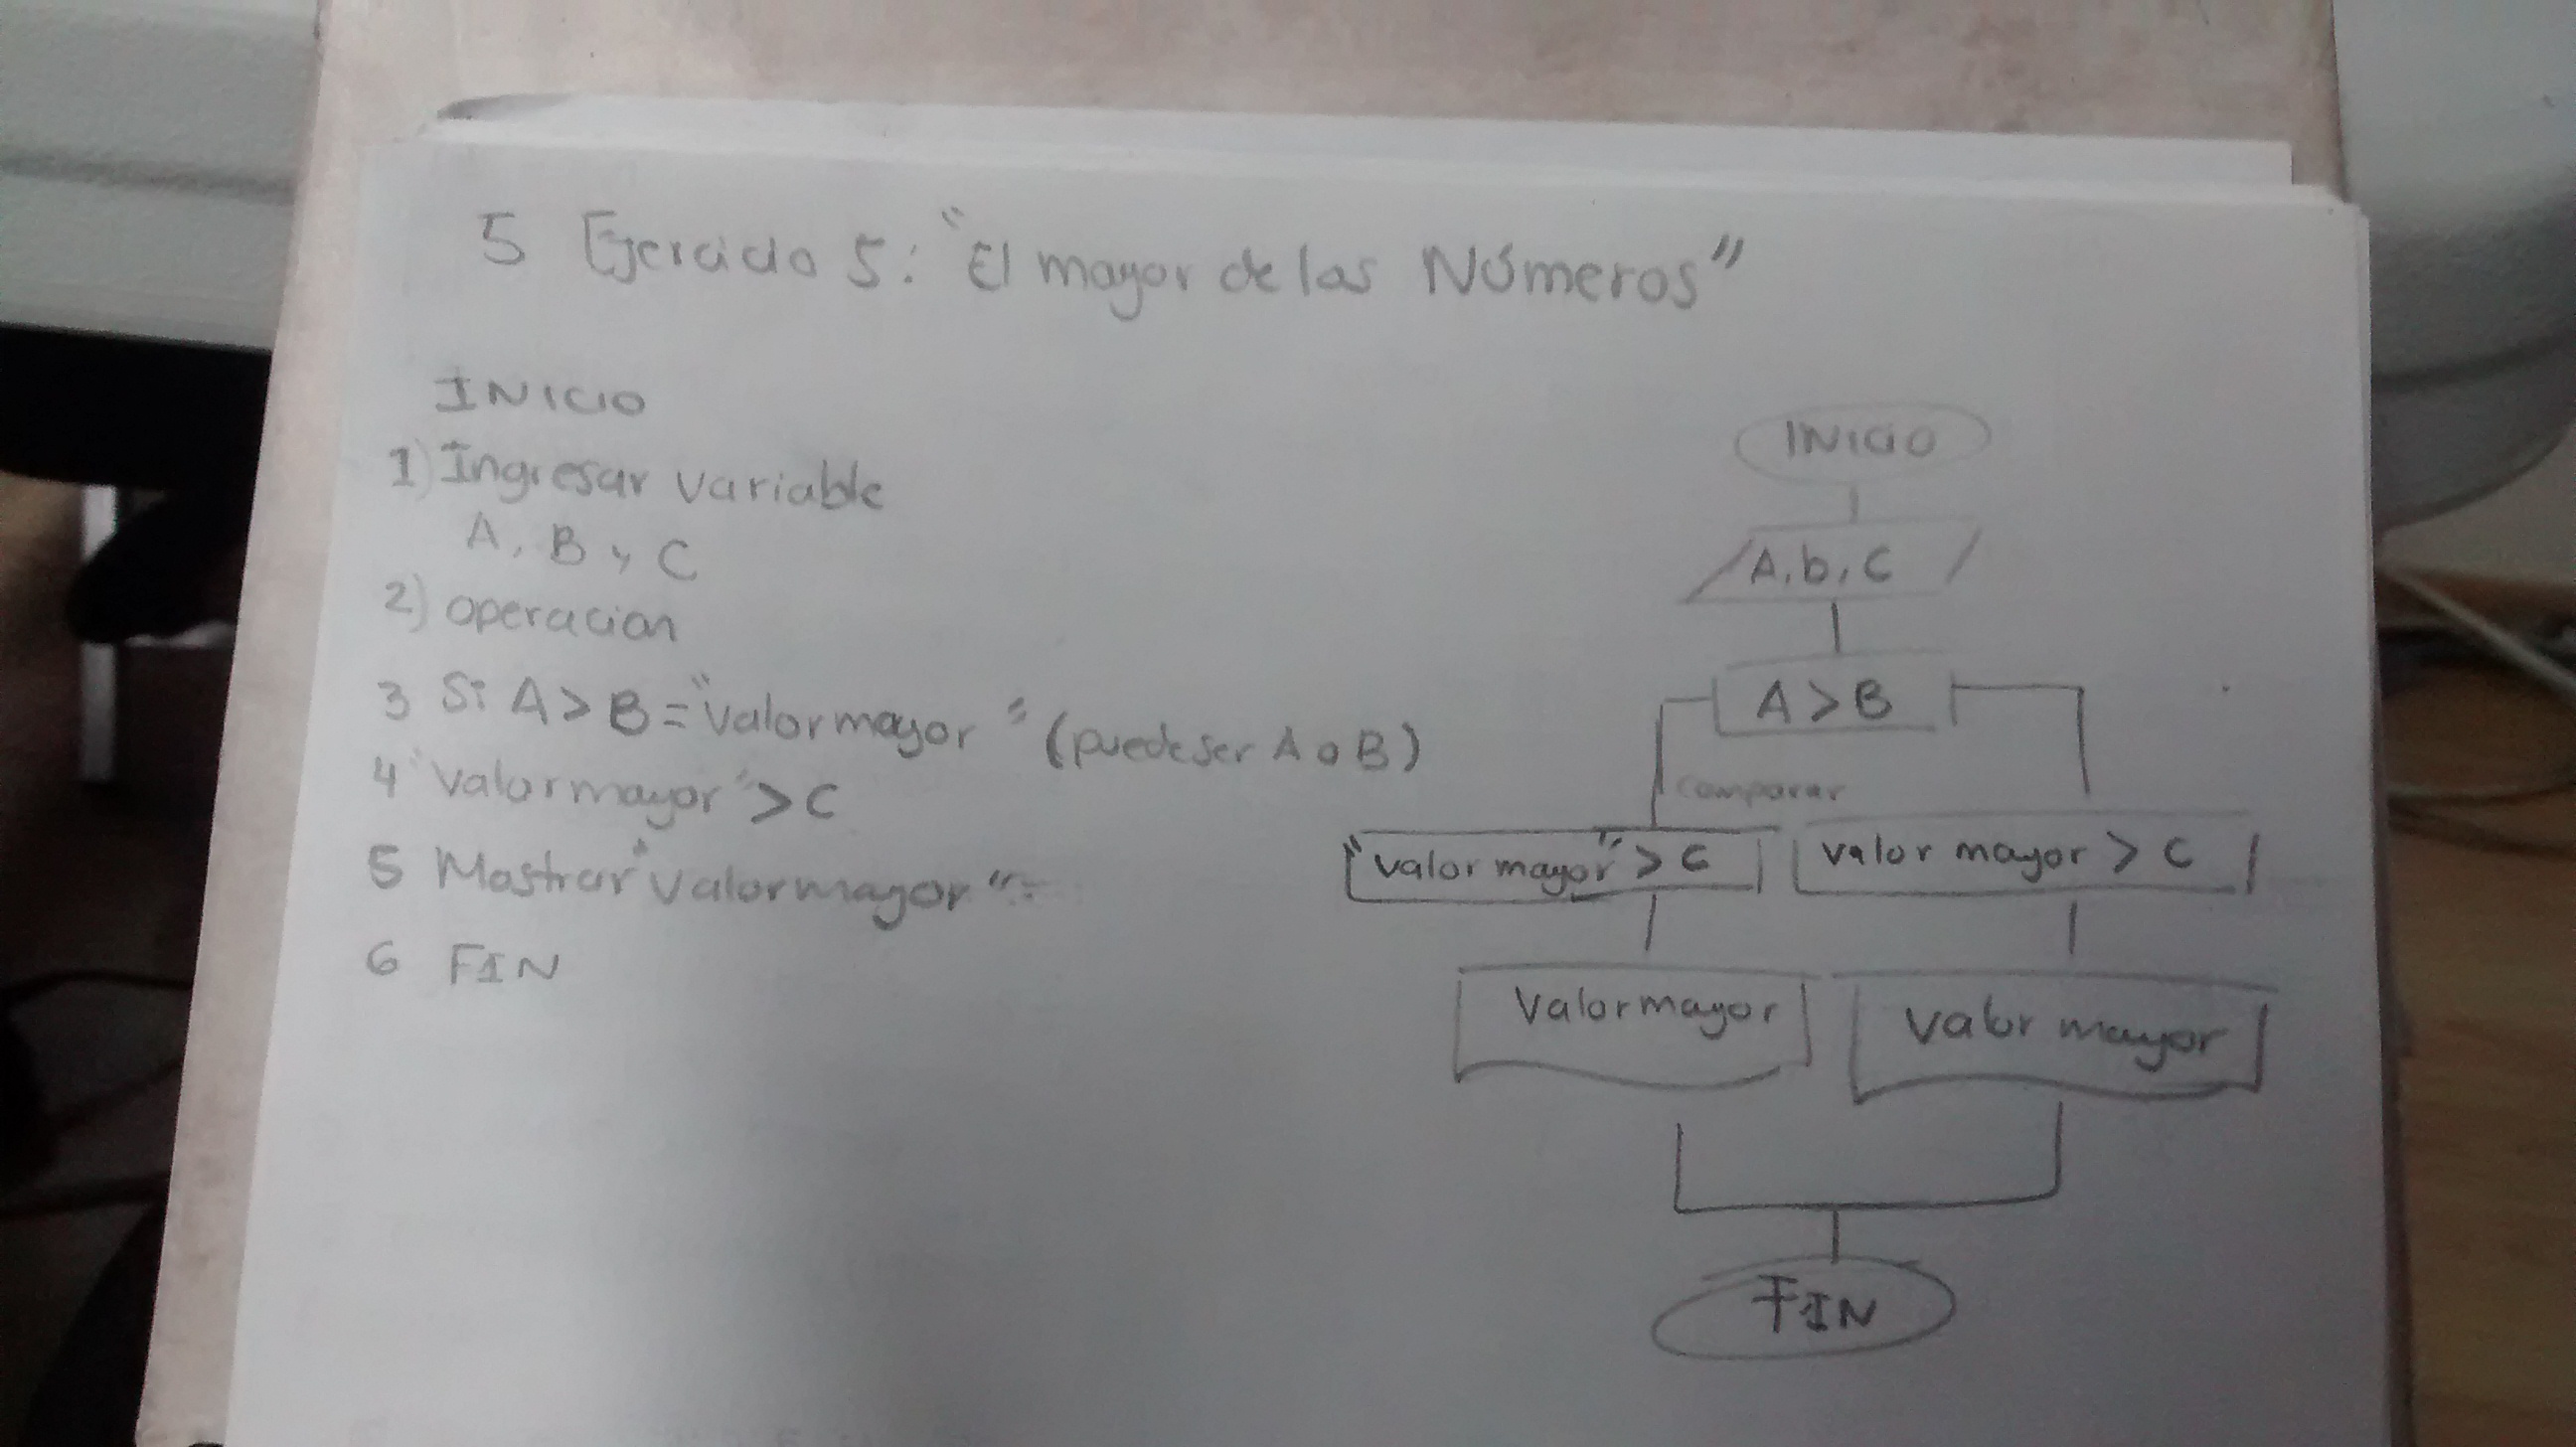 5 Ejercicio 5: "El mayor de los Números"
INICIO
1) Ingresar variable
A, B y C
2) operacion
3 Si A > B = "valor mayor" (puede ser A o B)
4 "valor mayor" > C
5 Mostrar "valor mayor"
6 FIN
INICIO
A, b, C
A > B
comparar
"valor mayor" > C
valor mayor > C
Valor mayor
valor mayor
FIN